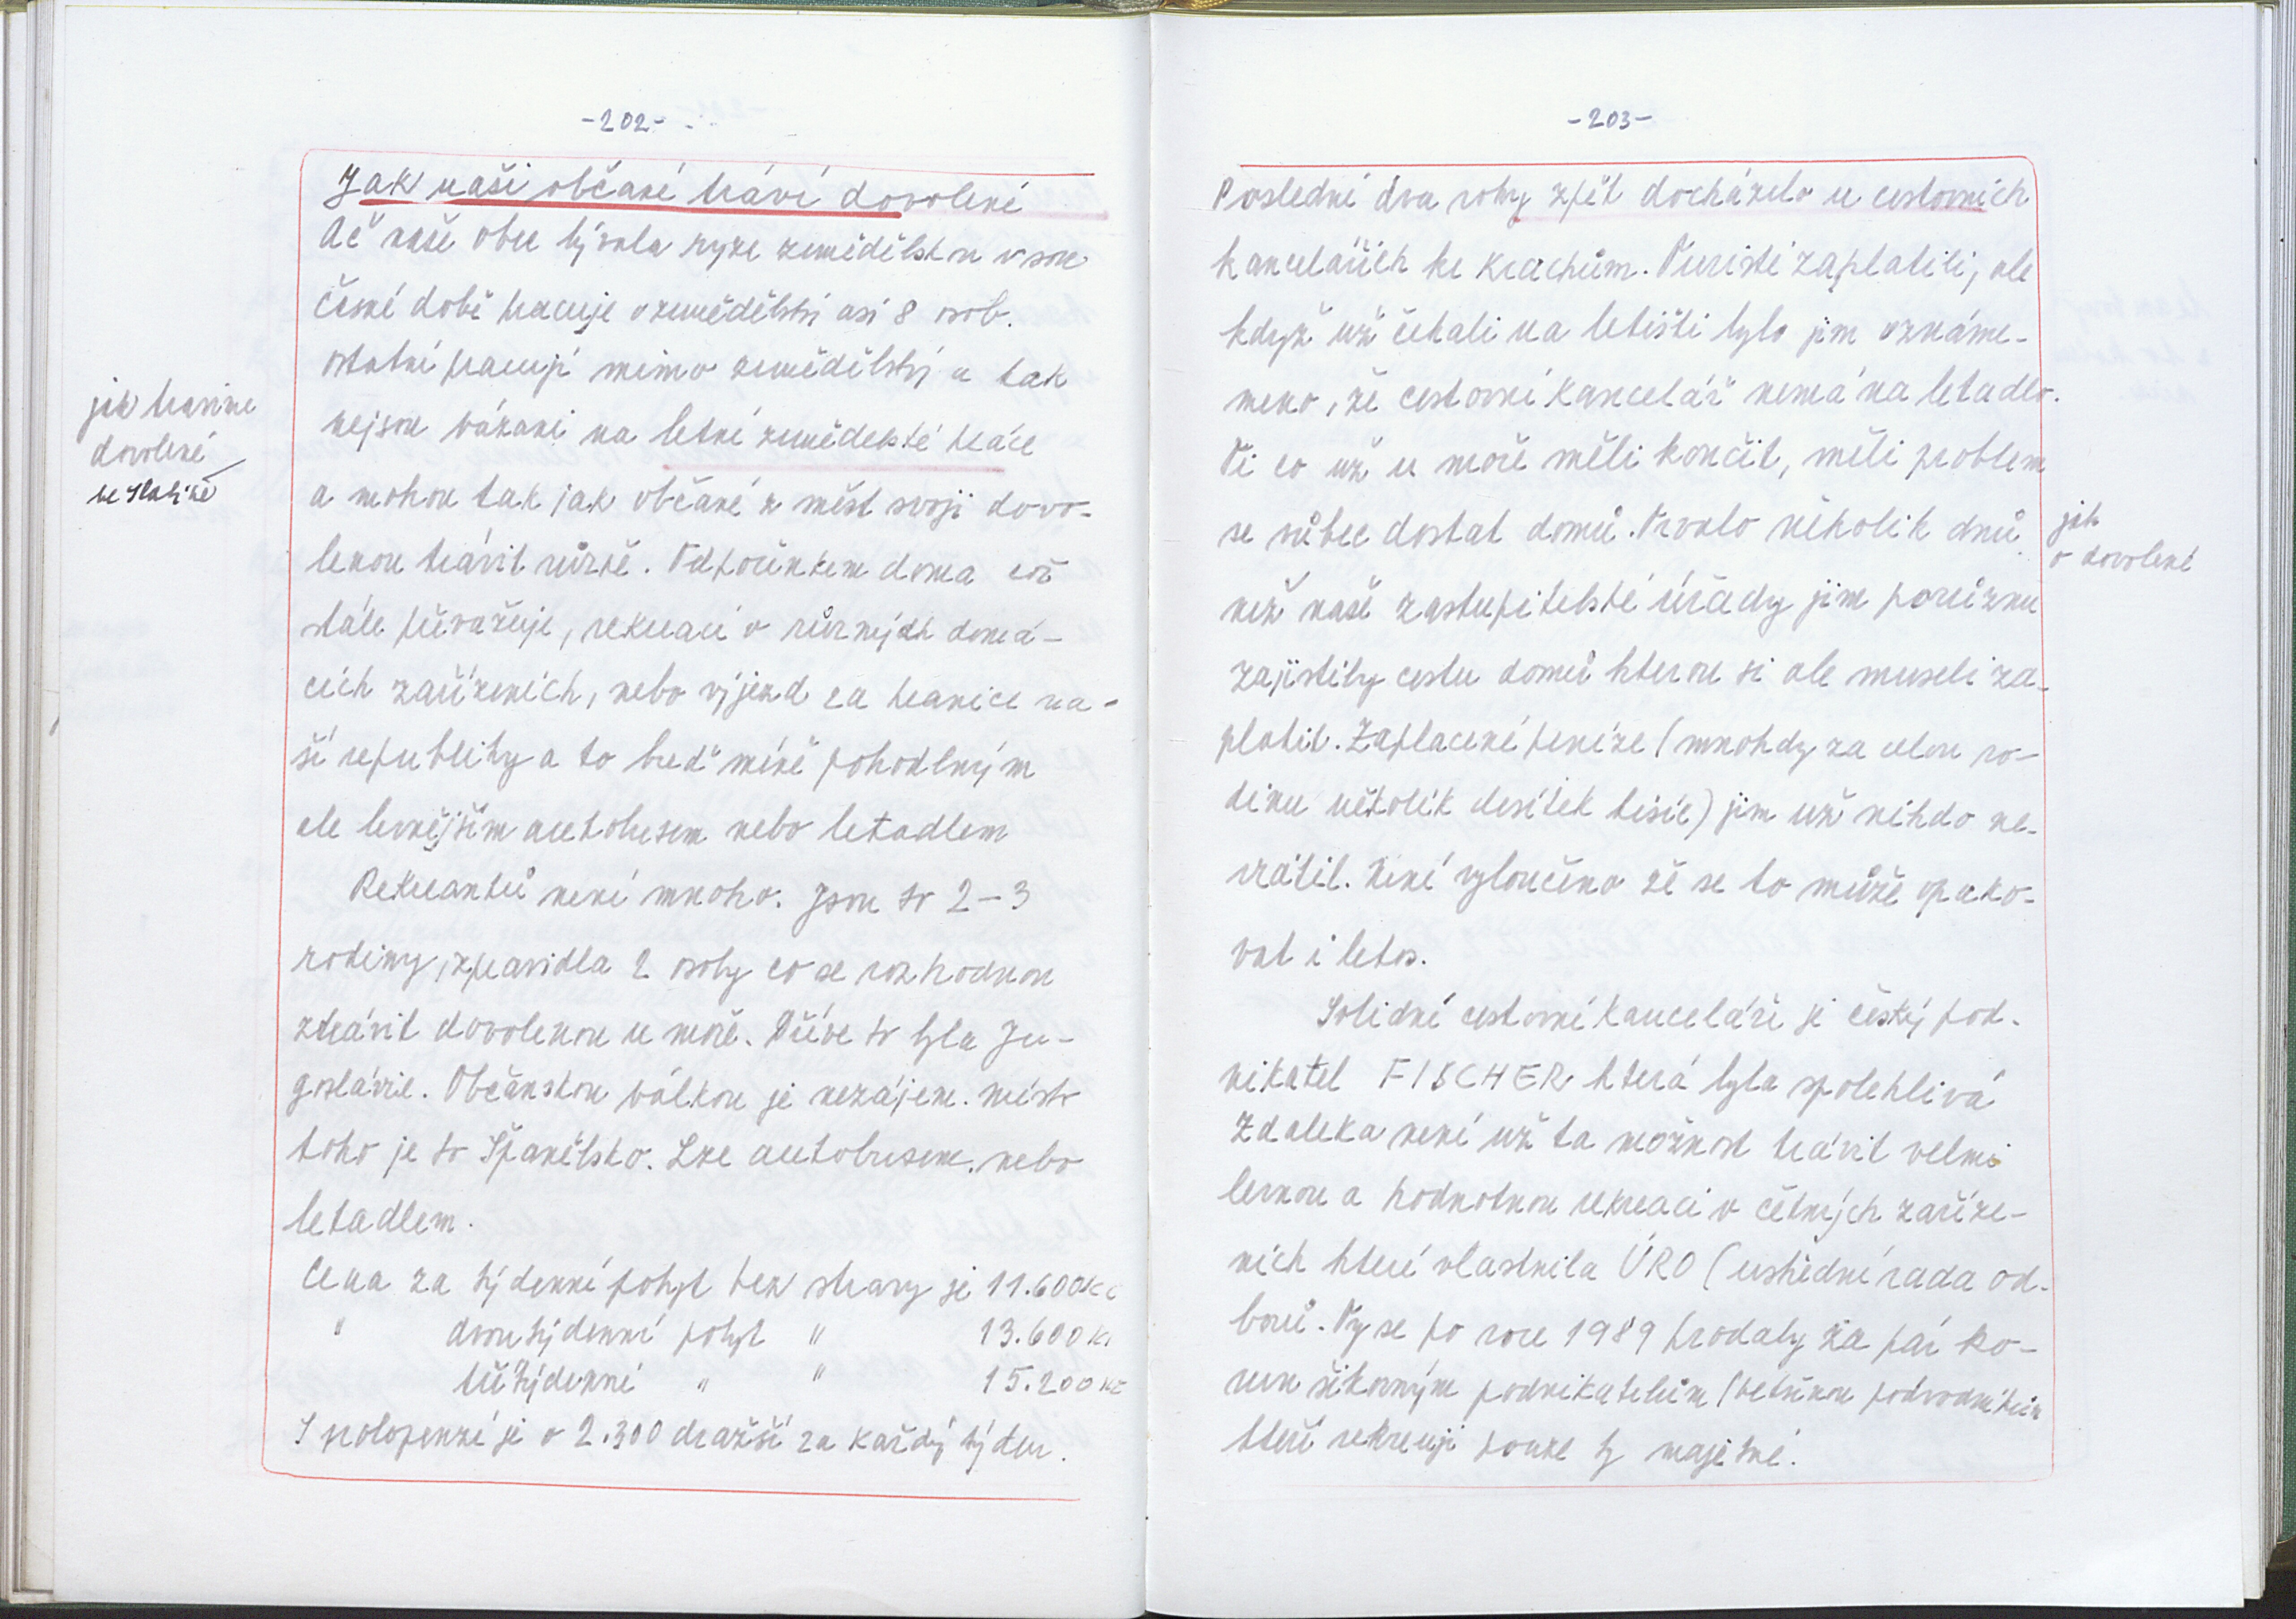 -202-
Jak naši občané tráví dovolené
Ač naše obec bývala ryze zemědělskou v sou
časné době pracuje v zemědělství asi 8 osob.
ostatní pracují mimo zemědělství a tak
nejsou vázani na letní zemědelské práce
a mohou tak jak občané z měst svoji dovo-
lenou trávit různě. Odpočinkem doma což
stále převažuje, rekreací v různých domá-
cích zařízeních, nebo výjezd za hranice na-
ší republiky a to buď méně pohodlným
ale levnějším autobusem nebo letadlem
Rekreantů není mnoho. Jsou to 2-3
rodiny, zpravidla 2 osoby co se rozhodnou
ztrávit dovolenou u moře. Dříve to byla Ju-
goslávie. Občanskou válkou je nezájem. místo
toho je to Španělsko. Lze autobusem. nebo
letadlem.
Cena za týdenní pobyt bez stravy je 11.600Kč
" dvoutýdenní pobyt " 13.600 Kč
třítýdenní " " 15.200 Kč
S polopenzí je o 2.300 dražší za každý týden.
jak travíme
dovolené
-203-
Poslední dva roky zpět docházelo u cestovních
kancelářích ke krachům. Turisté zaplatili, ale
když už čekali na letišti bylo jim oznáme-
meno, že cestovní kancelář nemá na letadlo.
Ti co už u moře měli končit, měli problem
se vůbec dostat domů. Trvalo několik dnů
než naše zastupitelské úřady jim porůznu
zajistily cestu domů kterou si ale museli za-
platit. Zaplacené peníze (mnohdy za celou ro-
dinu několik desítek tisíc) jim už nikdo ne-
vrátil. Není vyloučeno že se to může opako-
vat i letos.
Solidní cestovní kanceláří je český pod-
nikatel FISCHER která byla spolehlivá
Zdaleka není už ta možnost trávit velmi
levnou a hodnotnou rekreaci v četných zaříze-
ních které vlastnila ÚRO (ustřední rada od-
borů. Ty se po roce 1989 prodaly za pár ko-
run šikovným podnikatelům (většinou podvodníkům
kteří rekreují pouze ty majetné.
jak
o dovolené